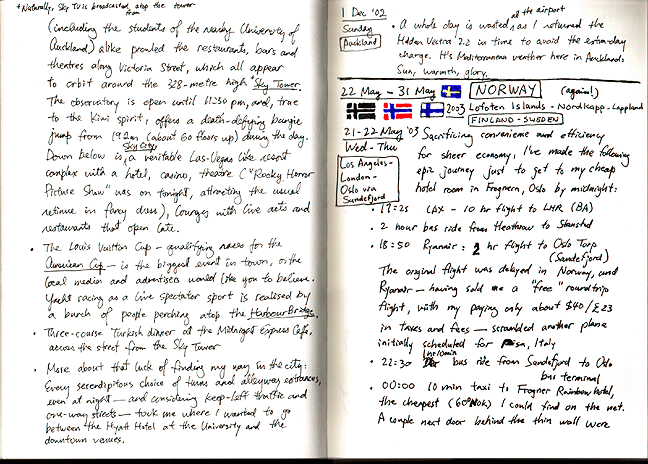 *Naturally, Sky TV is broadcasted from atop the tower
(including the students of the nearby University of
Auckland) alike prowled the restaurants, bars and
theatres along Victoria Street, which all appear
to orbit around the 328-metre high *Sky Tower.
The observatory is open until 11:30 pm, and, true
to the Kiwi spirit, offers a death-defying bungie
jump from 192m (about 60 floors up) during the day.
Down below is Sky City, a veritable Las-Vegas-like resort
complex with a hotel, casino, theatre ("Rocky Horror
Picture Show" was on tonight, attracting the usual
retinue in fancy dress), lounges with live acts and
restaurants that open late.
• The Louis Vuitton Cup – qualifying races for the
American Cup – is the biggest event in town, or the
local media and advertisers would like you to believe.
Yacht racing as a live spectator sport is realised by
a bunch of people perching atop the Harbour Bridge.
• Three-course Turkish dinner at the Midnight Express Café,
across the street from the Sky Tower
• More about that luck of finding my way in the city:
Every serendipitous choice of turns and alleyway entrances,
even at night – and considering keep-left traffic and
one-way streets – took me where I wanted to go
between the Hyatt Hotel at the University and the
downtown venues.
1 Dec '02
Sunday
Auckland
• A whole day is wasted at the airport as I returned the
Holden Vectra 2.2 in time to avoid the extra-day
charge. It's Mediterranean weather here in Auckland:
Sun, warmth, glory.
22 May – 31 May NORWAY (again!)
2003 Lofoten Islands – Nordkapp – Lappland
FINLAND – SWEDEN
21-22 May '03
Wed - Thu
Los Angeles –
London –
Oslo via
Sandefjord
Sacrificing convenience and efficiency
for sheer economy, I've made the following
epic journey just to get to my cheap
hotel room in Frogner, Oslo by midnight:
• 19:25 LAX – 10 hr flight to LHR (BA)
• 2 hour bus ride from Heathrow to Stansted
• 18:50 Ryanair: 2 hr flight to Oslo Torp
(Sandefjord)
The original flight was delayed in Norway, and
Ryanair – having sold me a "free" roundtrip
flight, with my paying only about $40/£23
in taxes and fees – scrambled another plane
initially scheduled for Pisa, Italy
• 22:30 1hr10min bus ride from Sandefjord to Oslo
bus terminal
• 00:00 10 min taxi to Frogner Rainbow hotel,
the cheapest (60 NOK) I could find on the net.
A couple next door behind the thin wall were